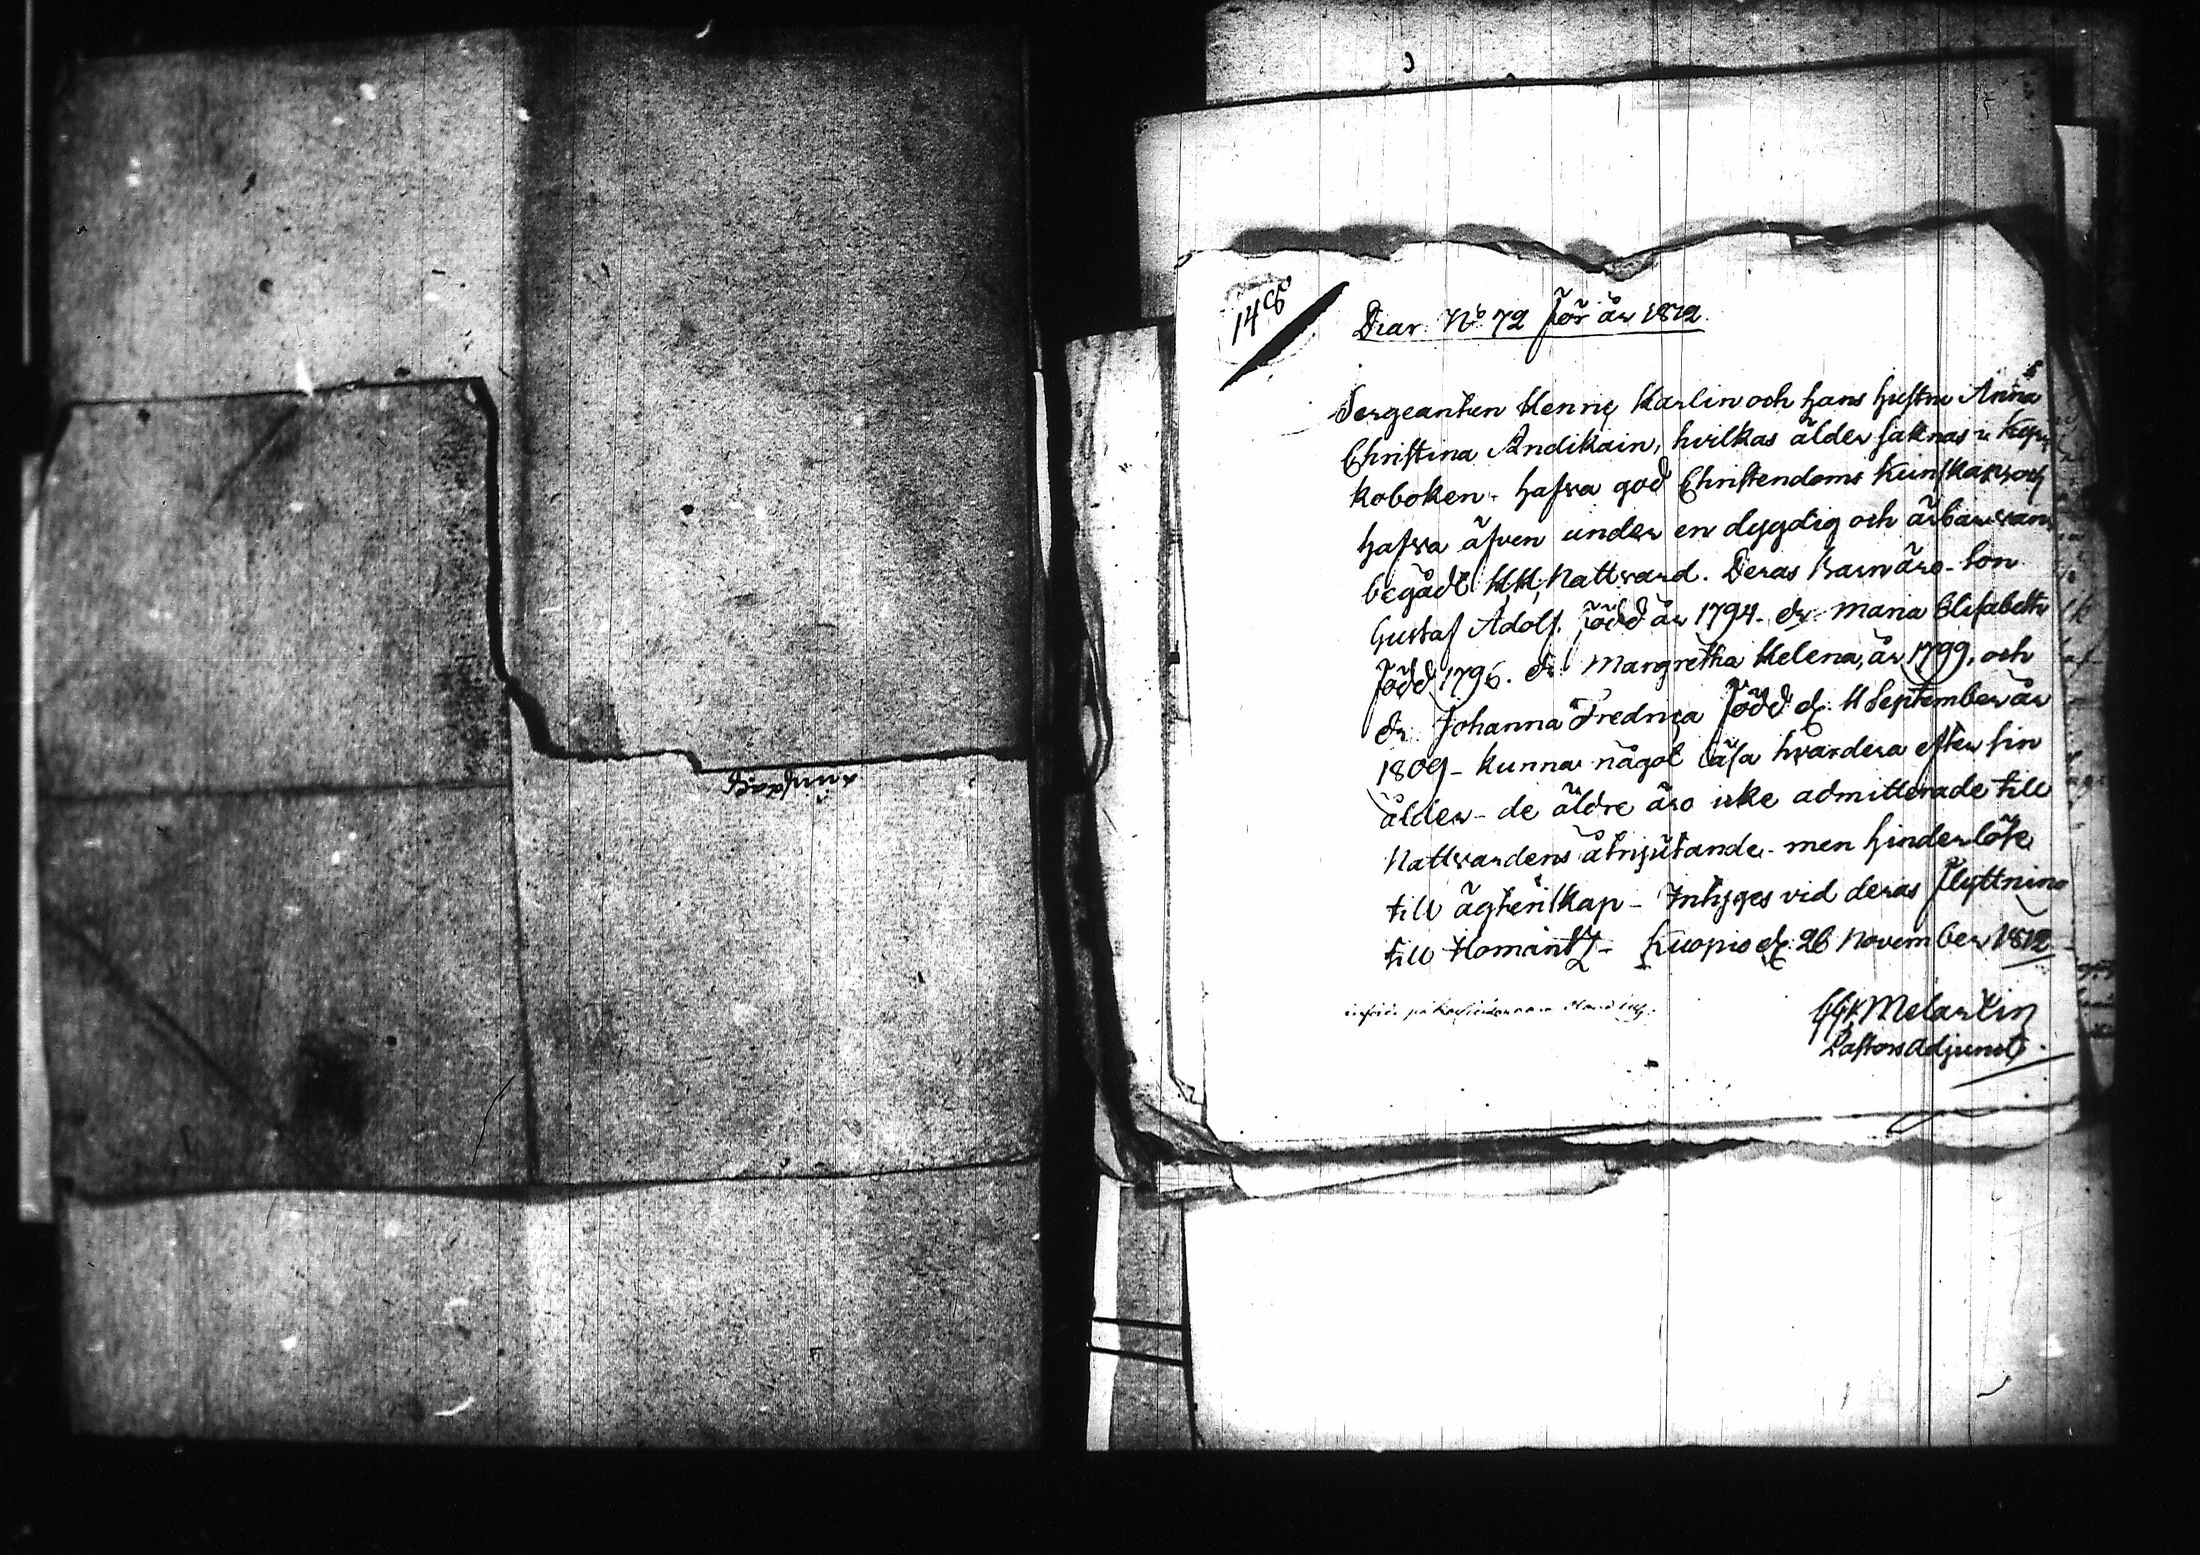 148
Diar. No 72 för år 1812.
Sergeanten Henric Karlin och hans hustru Anna
Christina Andikain, hvilkas ålder saknas i
koboken - hafva god Christendoms kunskap och
hafva äfven under en dygdig och ärbar vand
begådt H.H. Nattvard. Deras Barn äro - Son
Gustaf Adolf. född år 1794. dr. Maria Elisabeth
född 1796. dr. Margretha Helena, år 1799, och
dr. Johanna Fredrica född d. 11 September år
1809 - kunna något läsa hvardera efter sin
ålder - de äldre äro icke admitterade till
Nattvardens åtnjutande - men hinderlöse
till ägtenskap - Intyges vid deras flyttning
till Ilomants - Kuopio d. 26 November 1812
Melartin
Pastors Adjunct.